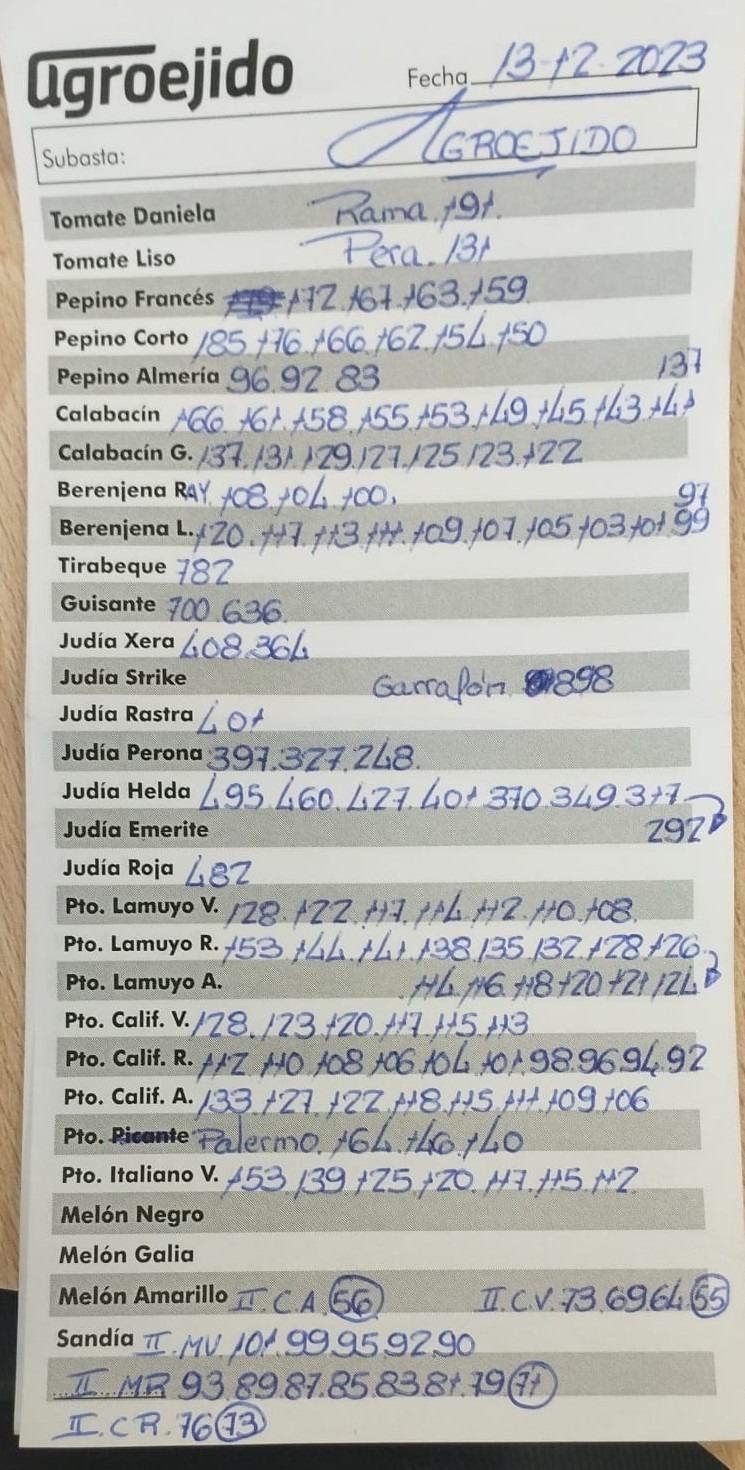 agroejido Fecha 13-12-2023
Subasta: AGROEJIDO
Tomate Daniela Rama. 191.
Tomate Liso Pera. 131
Pepino Francés 172.167.163.159
Pepino Corto 185.176.166.162.154.150
Pepino Almería 96.92.83
137
Calabacín 166.161.158.155.153.149.145.143.141
Calabacín G. 137.131.129.127.125.123.122
Berenjena RAY. 108.104.100.
97
Berenjena L. 120.117.113.111.109.107.105.103.101.99
Tirabeque 782
Guisante 700.636
Judía Xera 408.364
Judía Strike Garrafón 898
Judía Rastra 401
Judía Perona 397.327.248.
Judía Helda 495.460.427.401.370.349.317
Judía Emerite 292
Judía Roja 482
Pto. Lamuyo V. 128.122.117.114.112.110.108
Pto. Lamuyo R. 153.144.141.138.135.132.128.126
Pto. Lamuyo A. 114.116.118.120.121.124
Pto. Calif. V. 128.123.120.117.115.113
Pto. Calif. R. 112.110.108.106.104.101.98.96.94.92
Pto. Calif. A. 133.127.122.118.115.111.109.106
Pto. Picante Palermo. 164.146.140
Pto. Italiano V. 153.139.125.120.117.115.112
Melón Negro
Melón Galia
Melón Amarillo II.C.A. 56 II.C.V. 73.69.64.55
Sandía II.MV.101.99.95.92.90
II MR 93.89.87.85.83.81.79 71
II.CR.76 73